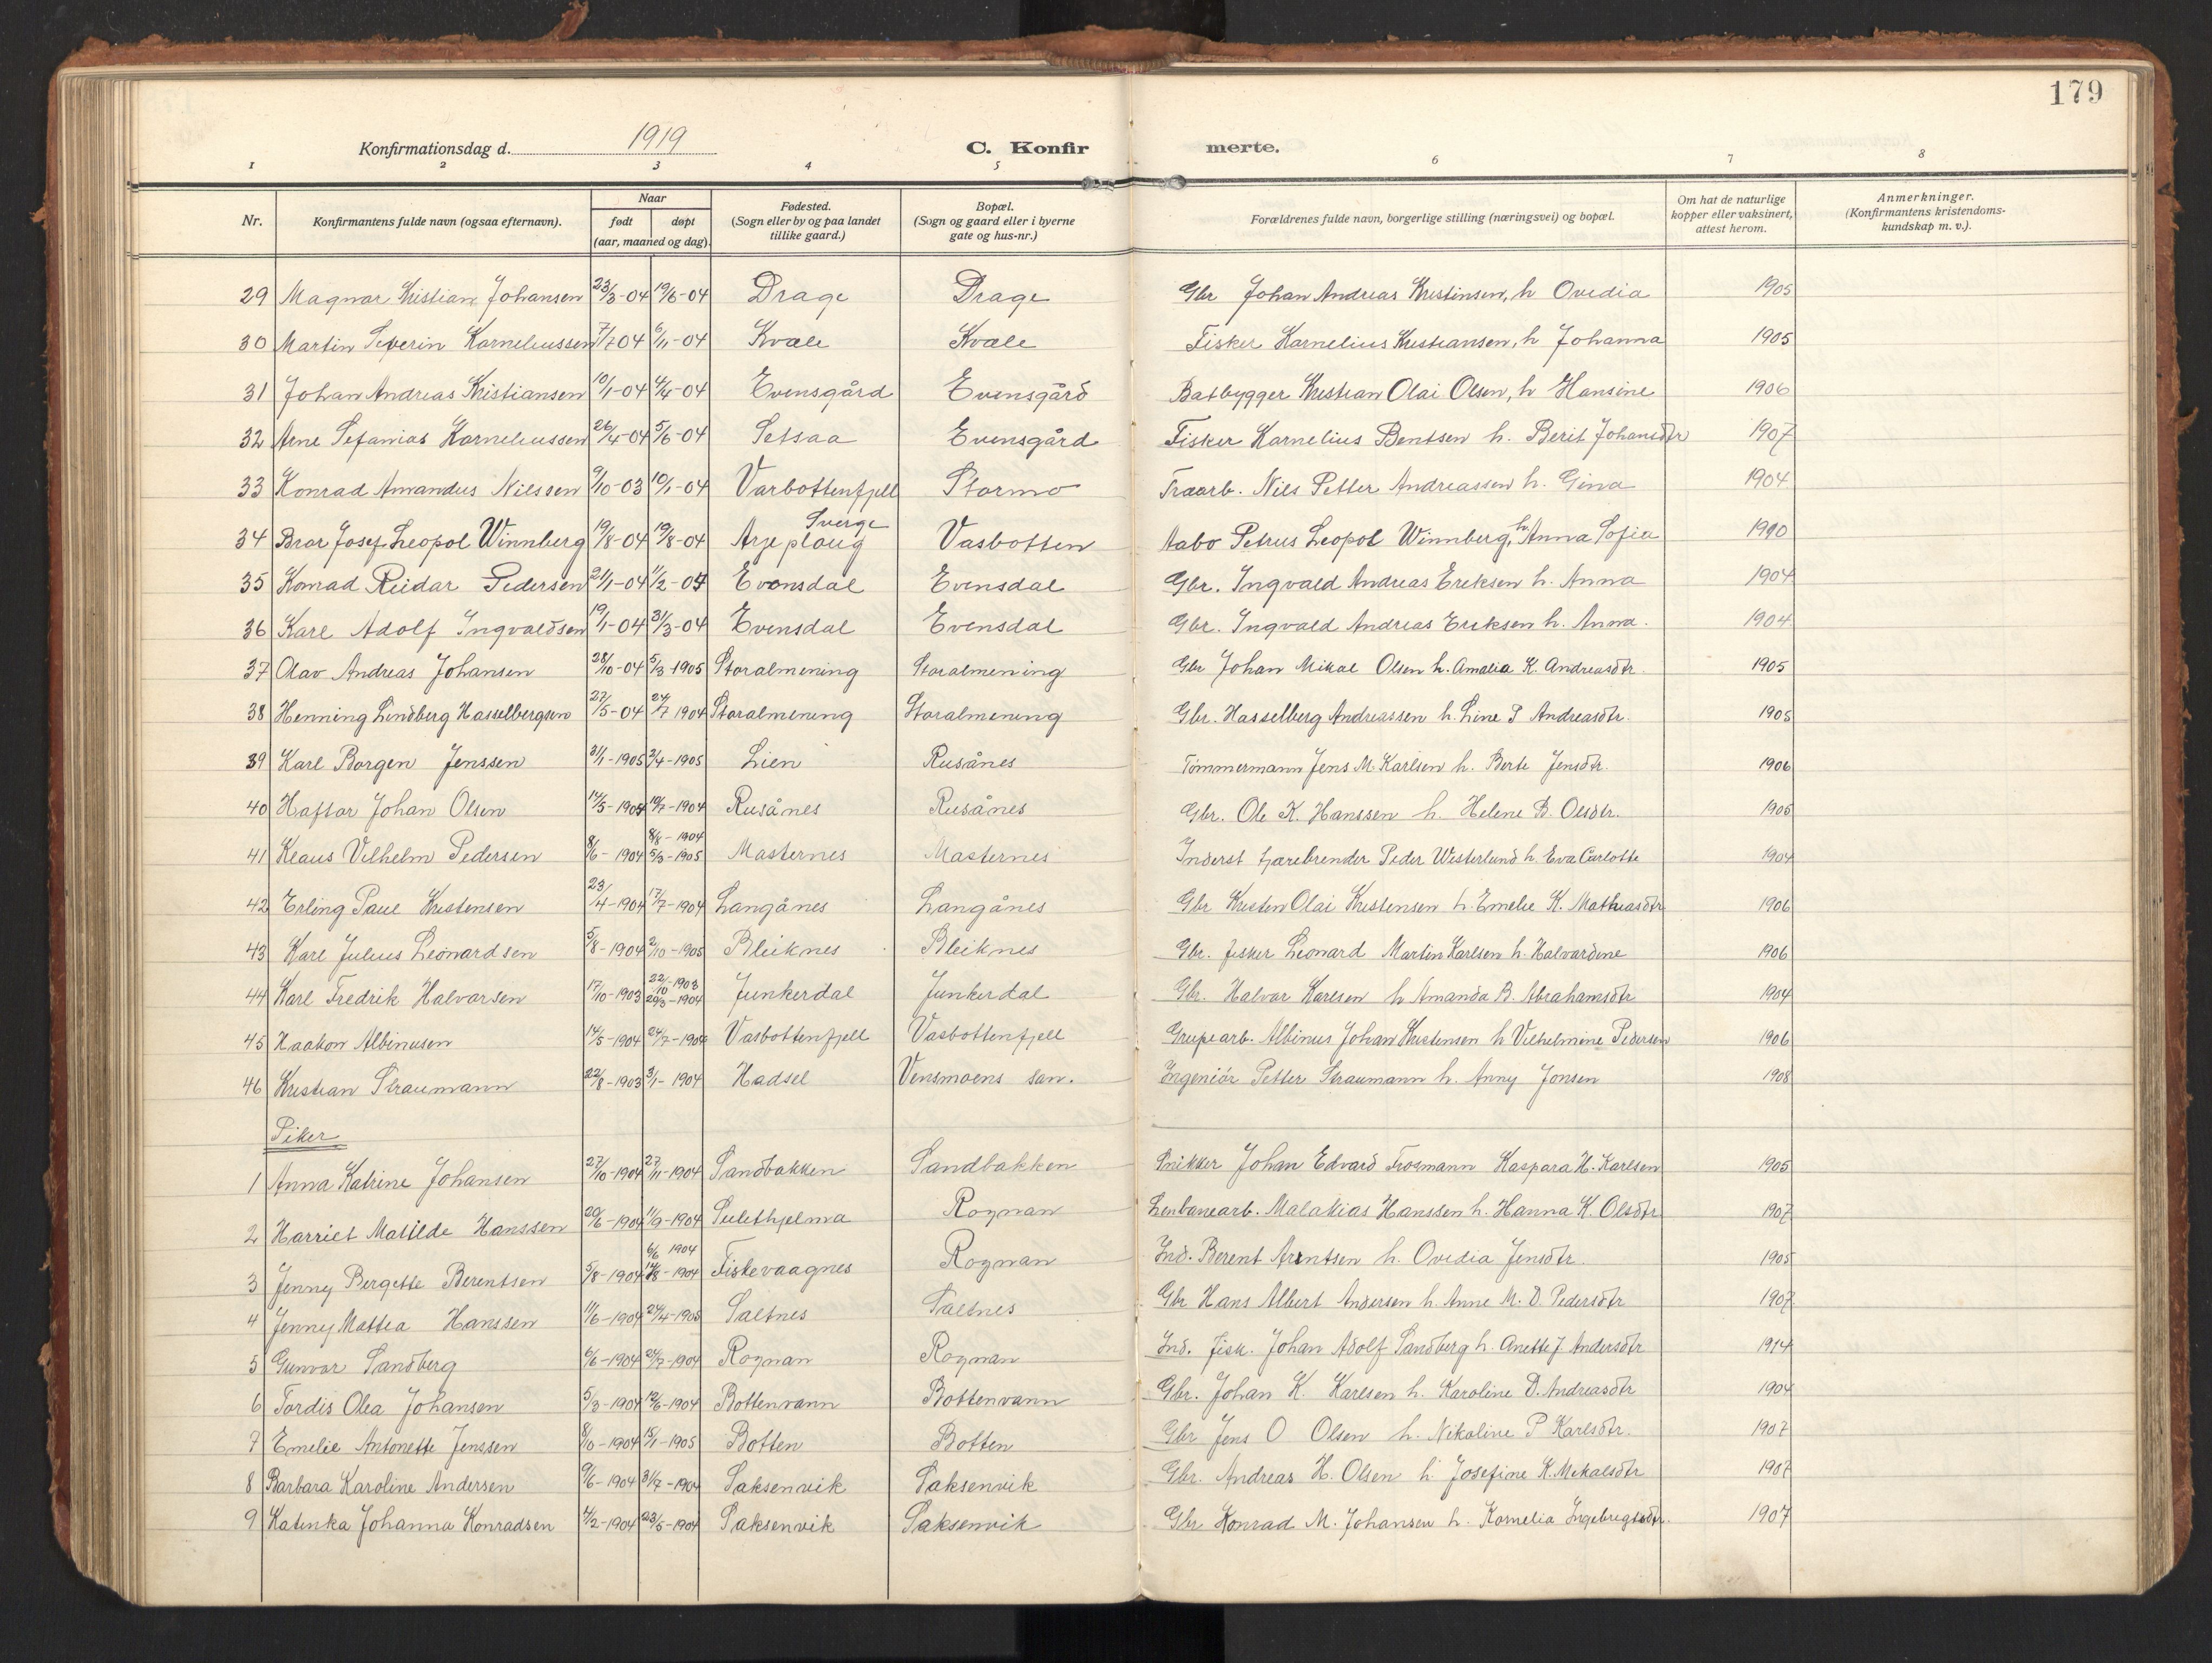 179
Konfirmationsdag d. 1919 C. Konfirmerte.
1 2 3 4 5 6 7 8
Nr. Konfirmantens fulde navn (ogsaa efternavn). Naar født døpt (aar, maaned og dag). Fødested. (Sogn eller by og paa landet tillike gaard.) Bopæl. (Sogn og gaard eller i byerne gate og hus-nr.) Forældrenes fulde navn, borgerlige stilling (næringsvei) og bopæl. Om hat de naturlige kopper eller vaksinert, attest herom. Anmerkninger. (Konfirmantens kristendomskundskap m. v.).
29 Magnar Kristian Johansen 23/3-04 19/6-04 Drage Drage Gbr Johan Andreas Kristinsen, h Ovedia 1905
30 Martin Severin Korneliussen 7/7 04 6/11-04 Kvæle Kvæle Fisker Kornelius Kristiansen, h Johanna 1905
31 Johan Andreas Kristiansen 10/1-04 4/4-04 Evensgård Evensgård Batbygger Kristian Olai Olsen, h Hansine 1906
32 Arne Sefanias Korneliussen 26/4-04 5/6-04 Setsaa Evensgård Fisker Kornelius Bentsen h. Berit Johansdtr 1907
33 Konrad Amandus Nilssen 9/10-03 10/1-04 Varbottenfjell Stormo Traarb. Nils Petter Andreassen h. Gina 1904
34 Bror Josef Leopol Winnberg 19/8-04 19/8-04 Arjeploug Sverge Vasbotten Aabo Petrus Leopol Winnberg, h. Anna Sofia 1910
35 Konrad Reidar Pedersen 21/1-04 11/2-04 Evensdal Evensdal Gbr. Ingvald Andreas Eriksen h. Anna 1904
36 Karl Adolf Ingvaldsen 19/1-04 31/3-04 Evensdal Evensdal Gbr. Ingvald Andreas Eriksen h. Anna. 1904
37 Olav Andreas Johansen 28/10-04 5/3 1905 Storalmening Storalmening Gbr Johan Mikal Olsen h. Amalia K. Andreasdtr. 1905
38 Henning Lindberg Hasselbergsen 27/5-04 24/7 1904 Storalmening Storalmening Gbr. Hasselberg Andreassen h. Line P Andreasdtr. 1905
39 Karl Borgen Jenssen 31/1-1905 2/4-1905 Lien Rusånes Tömmermann Jens M. Karlsen h. Berte Jensdtr. 1906
40 Haftor Johan Olsen 14/5-1904 10/7-1904 Rusånes Rusånes Gbr. Ole K. Hanssen h. Helene B. Olsdtr. 1905
41 Klaus Vilhelm Pedersen 8/6-1904 8/8-1904 5/3-1905 Masternes Masternes Inderst tjærebrender Peder Westerlund h. Eva Carlotte 1904
42 Erling Paul Kristensen 23/4-1904 17/7-1904 Langånes Langånes Gbr Kristen Olai Kristensen h. Emelie K. Mathiasdtr 1906
43 Karl Julius Leonardsen 5/8-1904 2/10-1905 Bleiknes Bleiknes Gbr. fisker Leonard Martin Karlsen h. Halvardine 1906
44 Karl Fredrik Halvorsen 17/10-1903 22/10-1903 20/3-1904 Junkerdal Junkerdal Gbr. Halvar Karlsen h Amanda B. Abrahamsdtr 1904
45 Haakon Albinusen 14/5-1904 24/7-1904 Vasbottenfjell Vasbottenfjell Grupearb. Albinus Johan Kristensen h Vilhelmine Pedersen 1906
46 Kristian Straumann 22/8-1903 3/1-1904 Hadsel Vensmoens san. Ingeniör Petter Straumann h. Anny Jonsen 1908
Piker
1 Anna Katrine Johansen 27/10-1904 27/11-1904 Sandbakken Sandbakken Snikker Johan Edvard Trosmann Kaspara H. Karlsen 1905
2 Harriet Matilde Hanssen 20/6-1904 11/9-1904 Sulethjelma Rognan Linbanearb. Malakias Hanssen h. Hanna K. Olsdtr 1907
3 Jenny Bergette Berentsen 5/8-1904 6/6 1904 14/8-1904 Fiskevaagnes Rognan Ind. Berent Arentsen h. Ovedia Jensdtr. 1905
4 Jenny Mattea Hanssen 11/6-1904 24/4-1905 Saltnes Saltnes Gbr Hans Albert Andersen h. Anne M. D. Pedersdtr 1907
5 Gunvor Sandberg 6/6-1904 24/7-1904 Rognan Rognan Ind. fisk. Johan Adolf Sandberg h. Anette J. Andersdtr 1914
6 Tordis Olea Johansen 5/3-1904 12/6-1904 Bottenvann Bottenvann Gbr. Johan K. Karlsen h. Karoline D. Andreasdtr 1904
7 Emelie Antonette Jenssen 8/10-1904 15/1-1905 Botten Botten Gbr Jens O Olsen h. Nikoline P Karlsdtr. 1907
8 Barbara Karoline Andersen 9/6-1904 31/7-1904 Saksenvik Saksenvik Gbr. Andreas H. Olsen h. Josefine K. Mikalsdtr 1907
9 Katinka Johanna Konradsen 4/2-1904 23/5-1904 Saksenvik Saksenvik Gbr Konrad M. Johansen h. Kornelia Ingebrigtsdtr. 1907